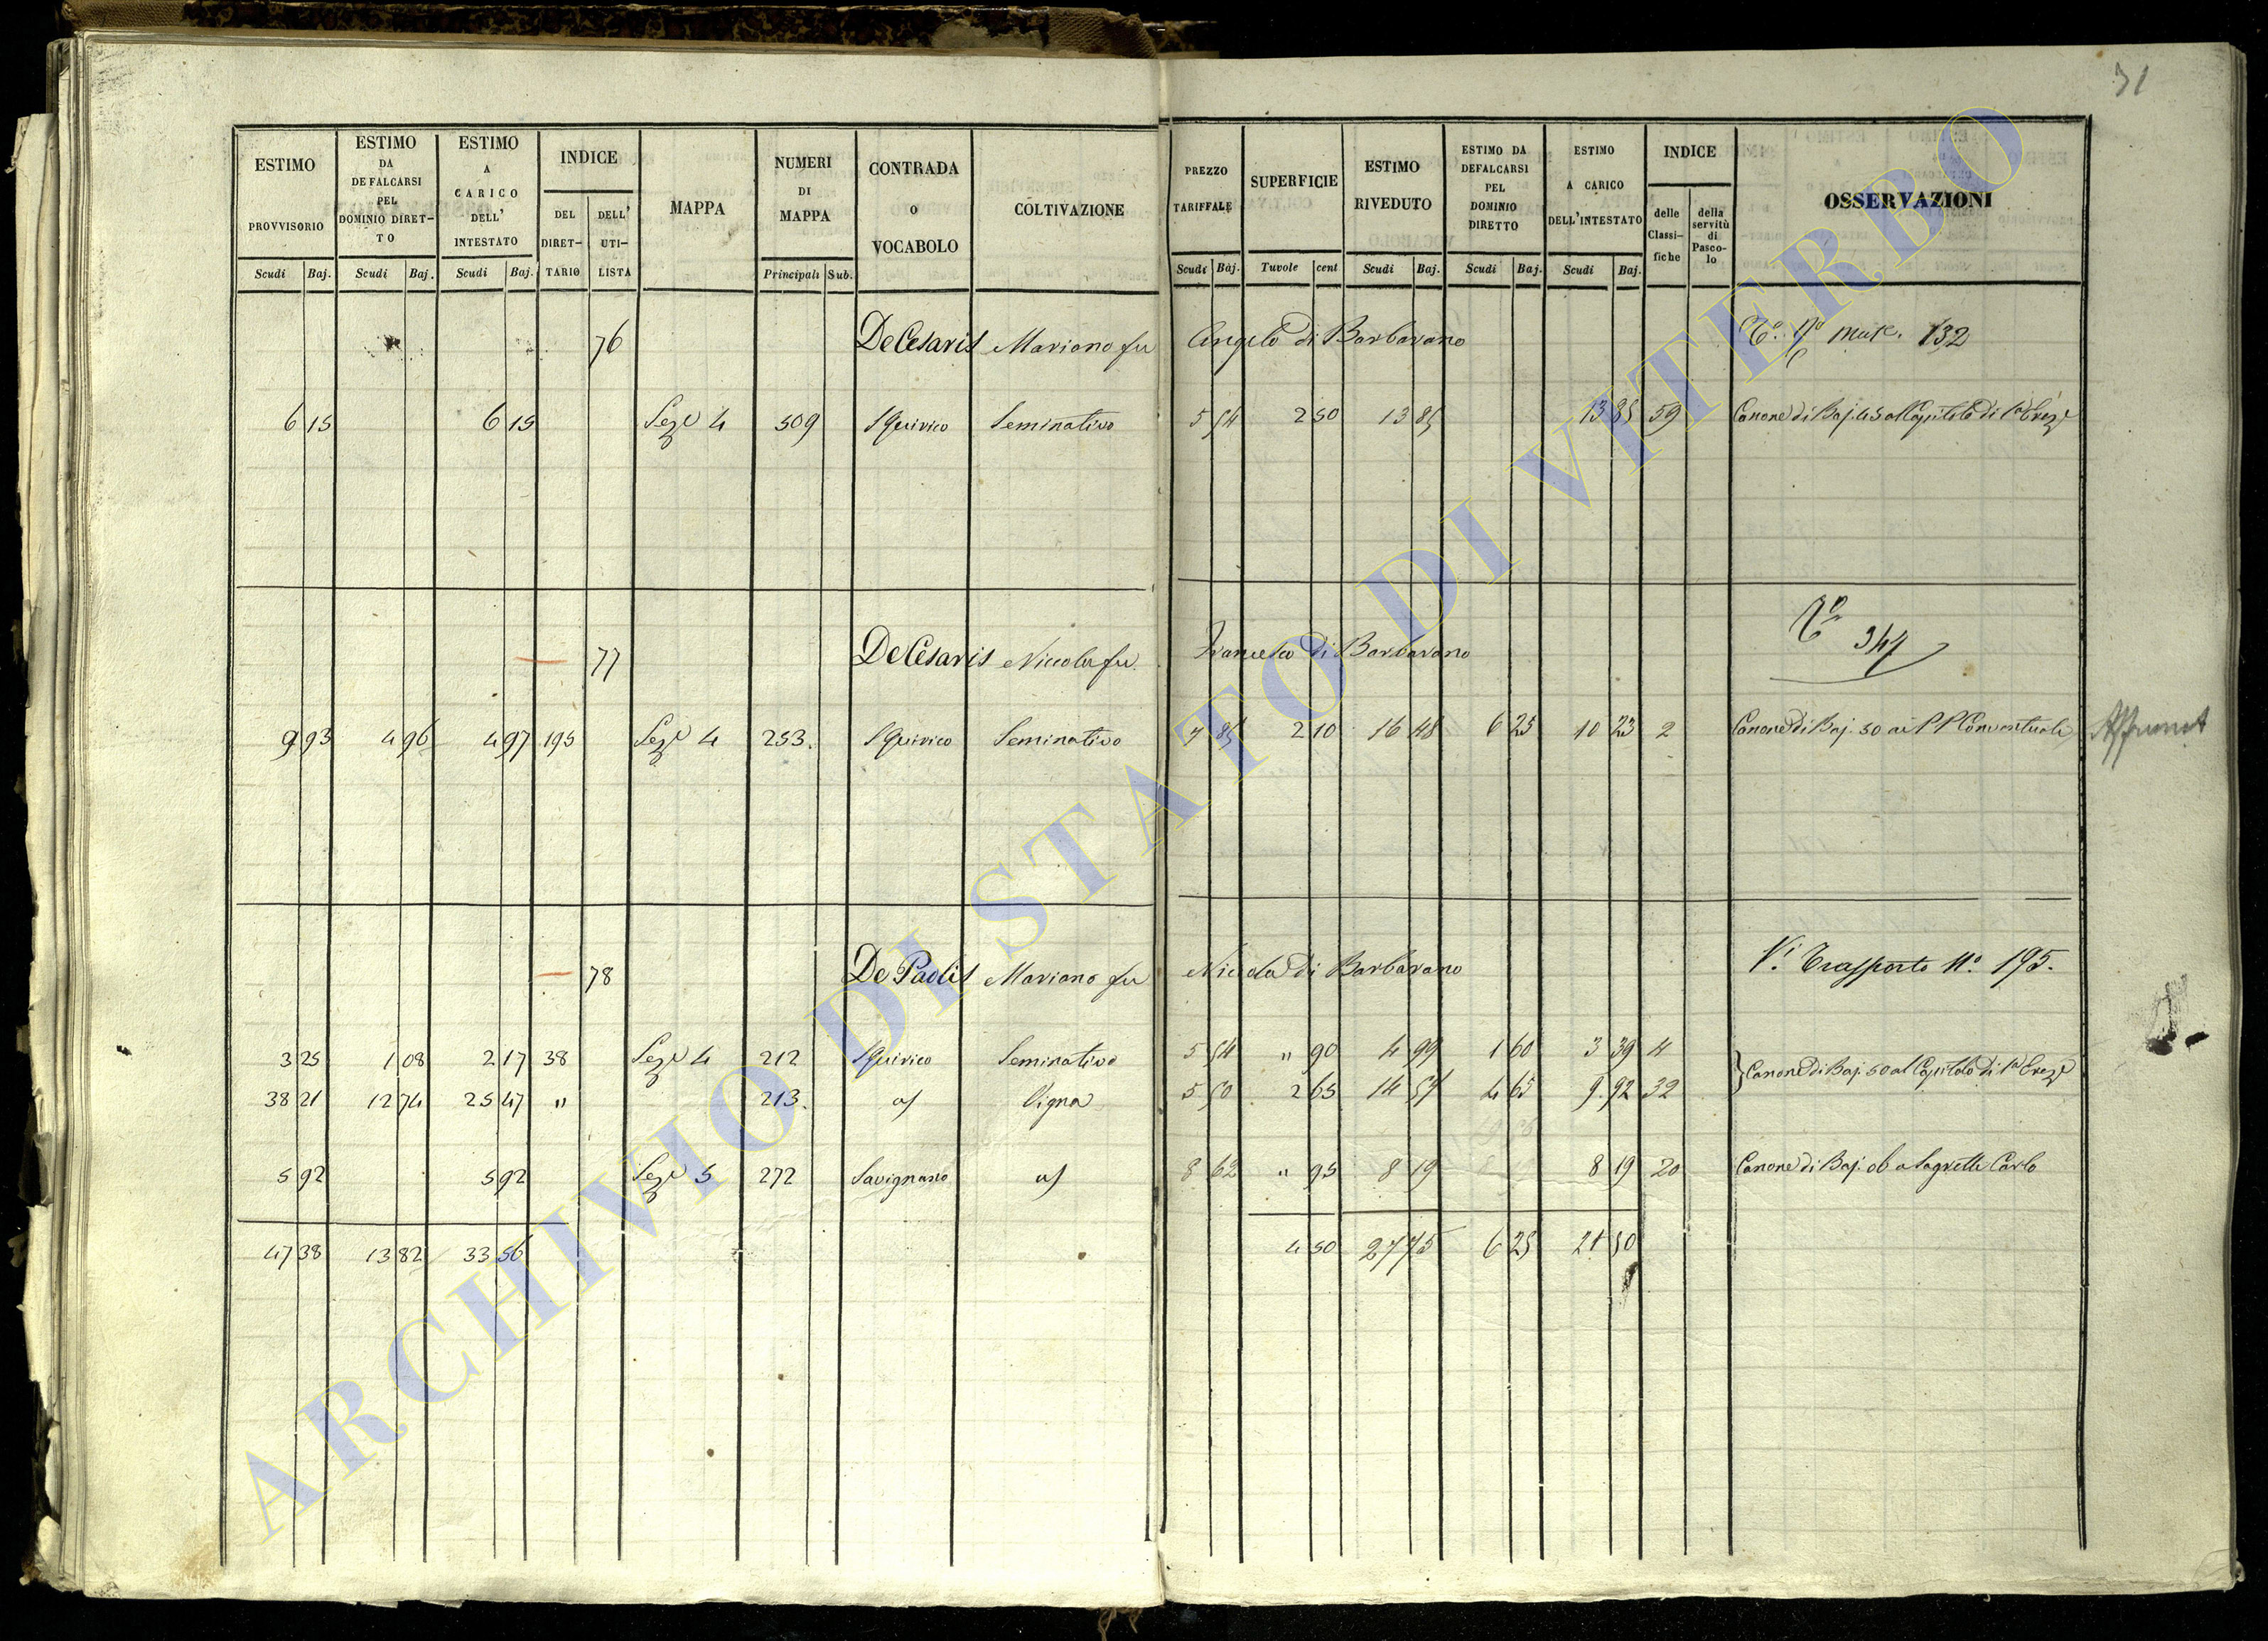 31
ESTIMO PROVVISORIO
ESTIMO DA DEFALCARSI PEL DOMINIO DIRET-TO
ESTIMO A CARICO DELL' INTESTATO
INDICE
DEL DIRET-TARIO
DELL' UTI-LISTA
MAPPA
NUMERI DI MAPPA
CONTRADA O VOCABOLO
COLTIVAZIONE
PREZZO TARIFFALE
SUPERFICIE
ESTIMO RIVEDUTO
ESTIMO DA DEFALCARSI PEL DOMINIO DIRETTO
ESTIMO A CARICO DELL'INTESTATO
INDICE
delle Classi-fiche
della servitù di Pasco-lo
OSSERVAZIONI
Scudi Baj. Scudi Baj. Scudi Baj. Principali Sub. Scudi Baj. Tavole cent Scudi Baj. Scudi Baj. Scudi Baj.
76 De Cesaris Mariano fu Angelo di Barbarano 132
6 15 6 15 Sez.e 4 509 S Quirico Seminativo 5 54 2 50 13 85 13 85 59 Canone di Baj. 45 al Capitolo di S.a Croce
77 De Cesaris Niccola fu Francesco di Barbarano
344
9 93 4 96 4 97 195 Sez.e 4 253. S Quirico Seminativo 7 85 2 10 16 48 6 25 10 23 2 Canone di Baj. 50 ai PP Conventuali
78 De Paolis Mariano fu Nicola di Barbarano V.i Trasporto N.o 195.
3 25 1 08 2 17 38 Sez.e 4 212 S Quirico Seminativo 5 54 " 90 4 99 1 60 3 39 4
38 21 12 74 25 47 " 213. Vigna 5 50 2 65 14 57 4 65 9.92 32 Canone di Baj. 50 al Capitolo di S.a Croce
5 92 5 92 Sez.e 5 272 Savignano 8 62 " 95 8 19 8 19 20 Canone di Baj. 06 a Sagretti Carlo
47 38 13 82 33 56 4 50 27 75 6 25 21 50
ARCHIVIO DI STATO DI VITERBO